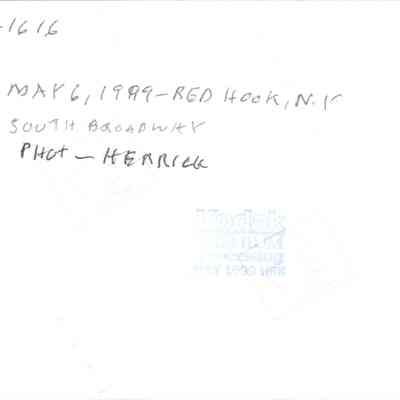 -1616
MAY 6, 1999 - RED HOOK, N.Y
SOUTH BROADWAY
PHOT - HERRICK
processing
MAY 1999